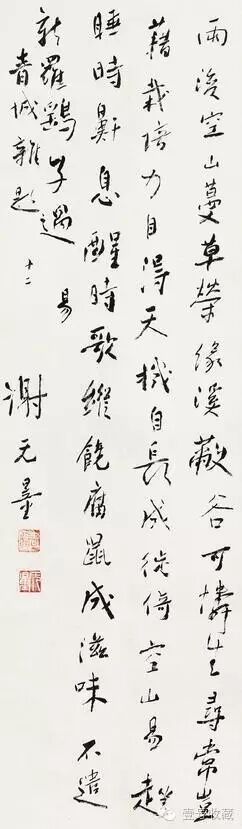 雨後空山蔓草榮緣溪蔽谷可憐生尋常豈
藉栽培力自得天機自長成徙倚空山易趖
睡時鼾息醒時歌縱饒腐鼠成滋味不遣
新羅鷂子過
易
青城雜題
十二
謝无量
收藏